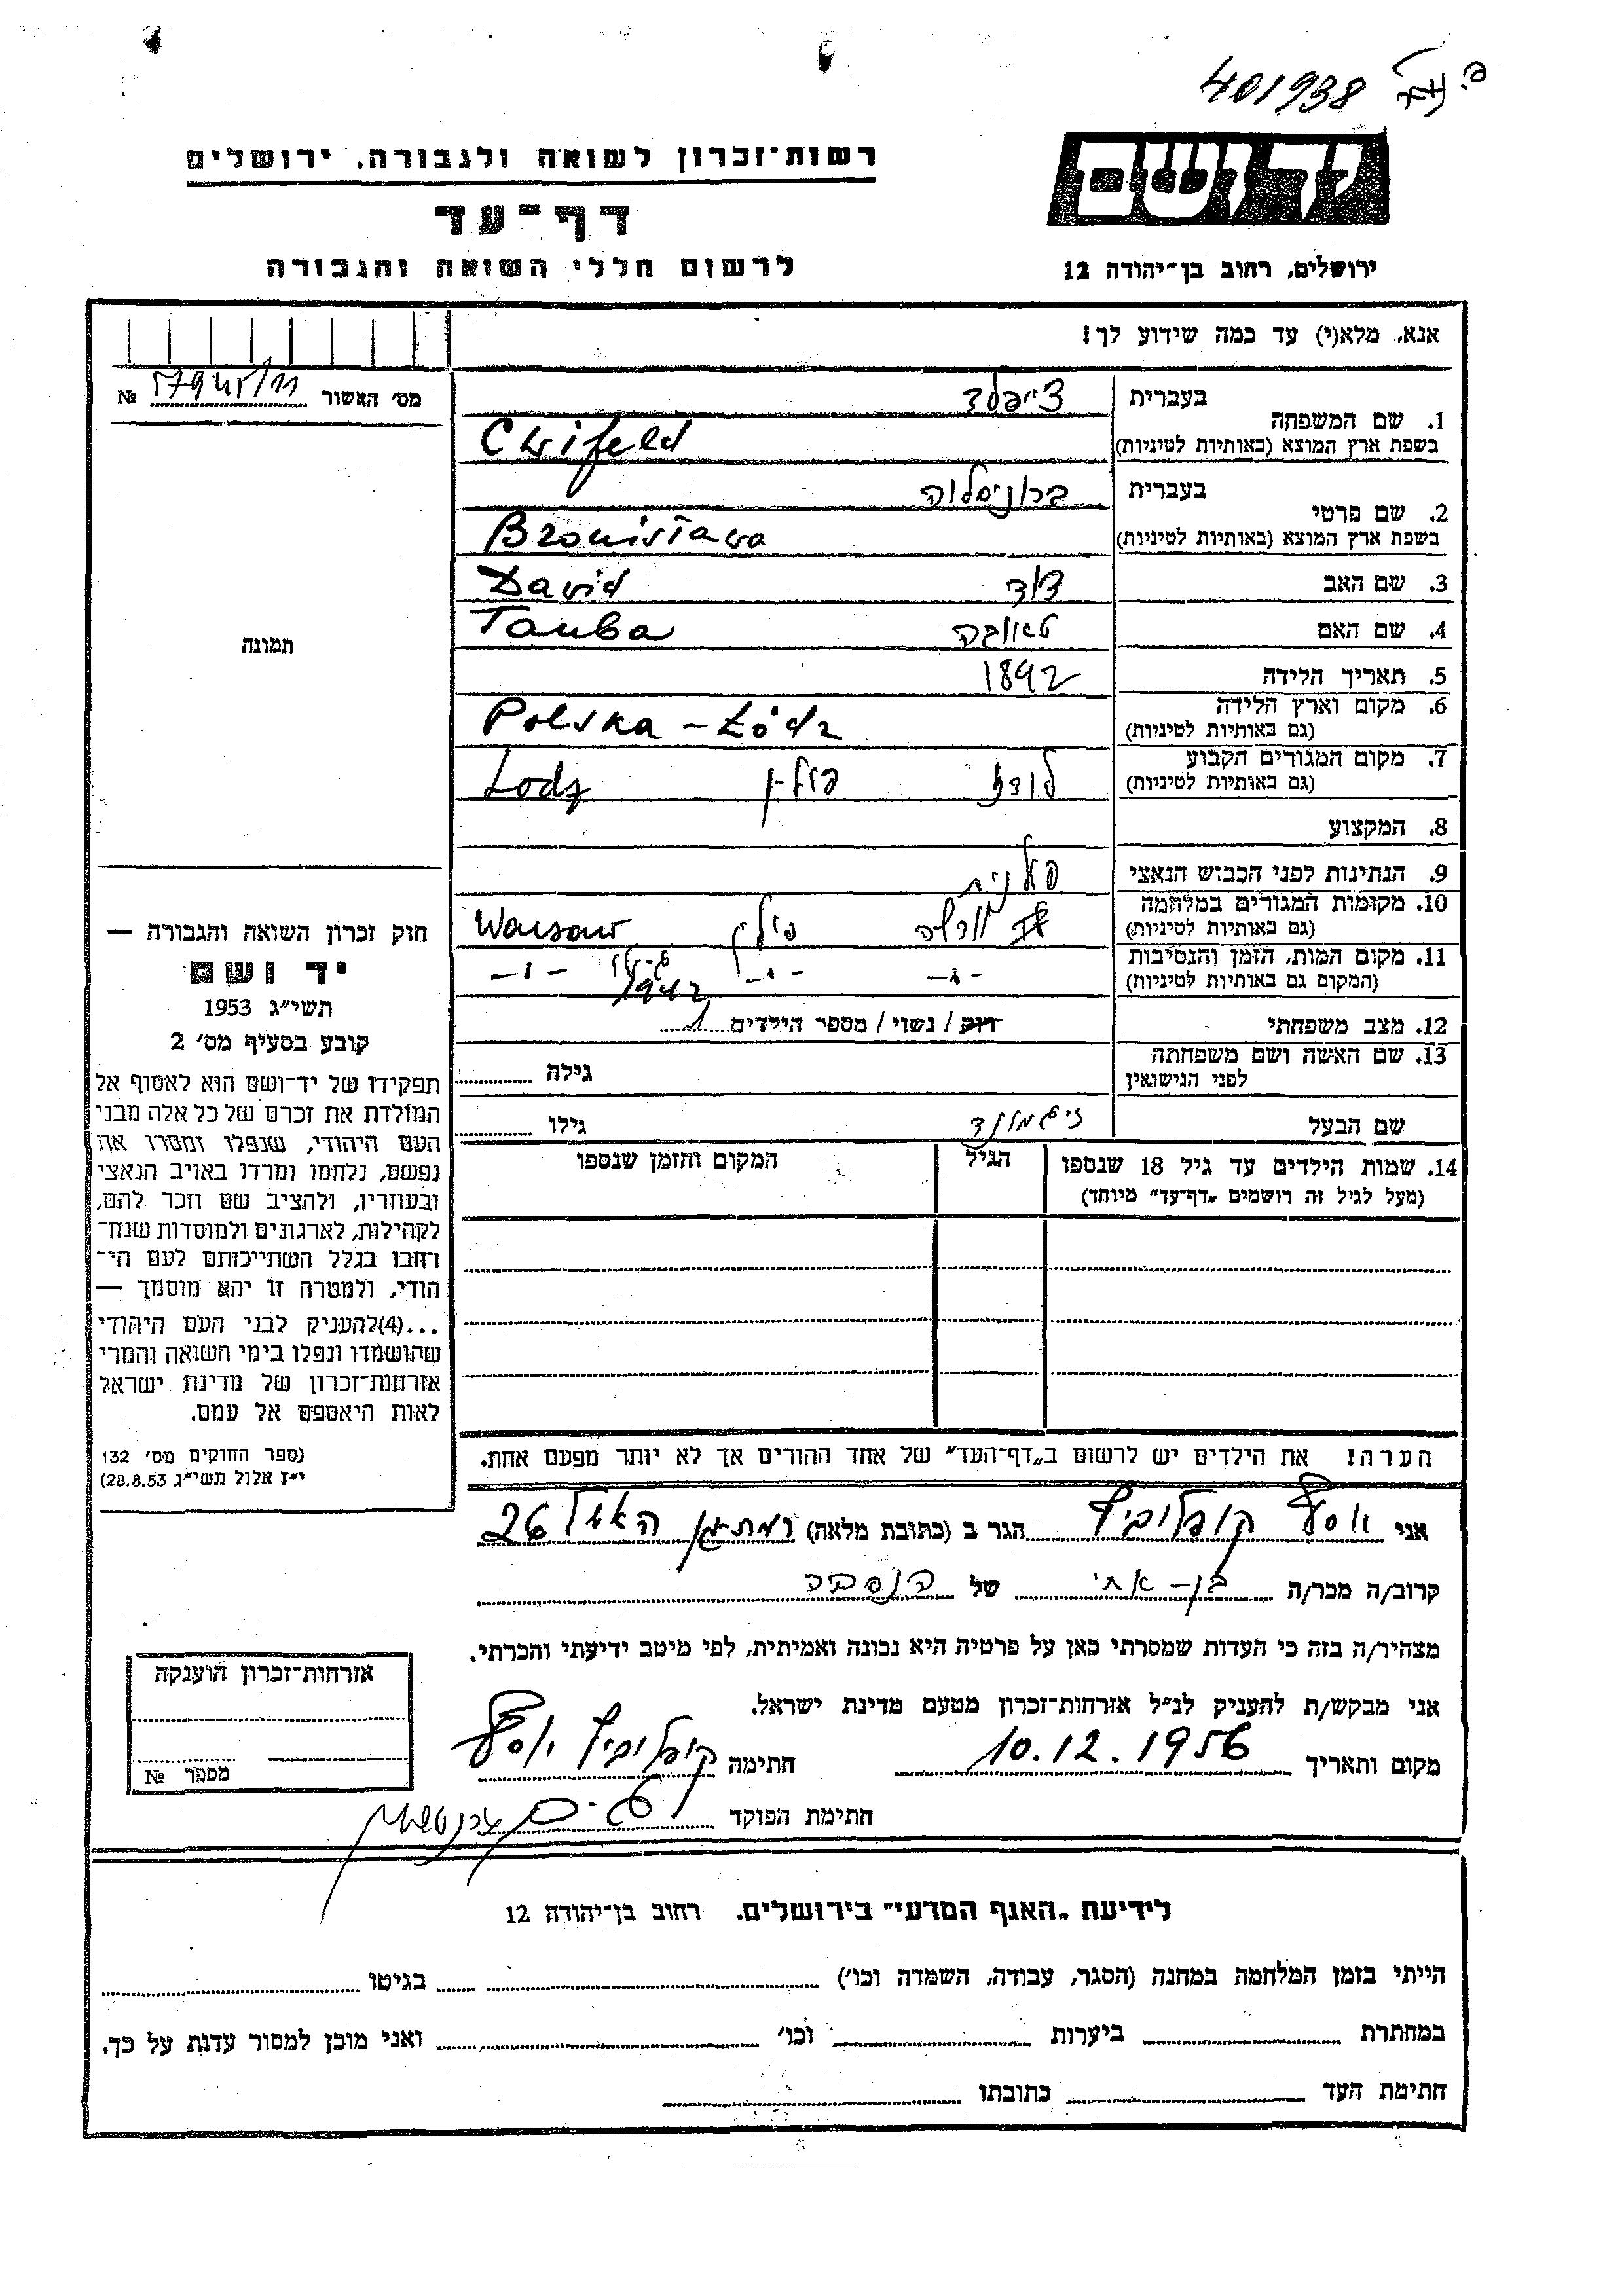 401938
יד ושם
רשות־זכרון לשואה ולגבורה, ירושלים
דף־עד
לרשום חללי השואה והגבורה
ירושלים, רחוב בן־יהודה 12
אנא, מלא(י) עד כמה שידוע לך!
מס׳ האשור № 57945/11
תמונה
1. שם המשפחה
בעברית צ'יפלד
בשפת ארץ המוצא (באותיות לטיניות) Cwifeld
2. שם פרטי
בעברית ברוניסלוה
בשפת ארץ המוצא (באותיות לטיניות) Bronisława
3. שם האב דוד David
4. שם האם טאובה Tauba
5. תאריך הלידה 1892
6. מקום וארץ הלידה Polska - Łódz
(גם באותיות לטיניות)
7. מקום המגורים הקבוע לודז פולין Lodz
(גם באותיות לטיניות)
8. המקצוע
9. הנתינות לפני הכבוש הנאצי פולנית
10. מקומות המגורים במלחמה ורשה פולין Warsaw
(גם באותיות לטיניות)
11. מקום המות, הזמן והנסיבות -"- -"- 1942 -"-
(המקום גם באותיות לטיניות)
12. מצב משפחתי רווק / נשוי / מספר הילדים 1
13. שם האשה ושם משפחתה
לפני הנישואין
גילה
שם הבעל זיגמונד גילו
14. שמות הילדים עד גיל 18 שנספו
(מעל לגיל זה רושמים „דף־עד״ מיוחד)
הגיל
המקום והזמן שנספו
חוק זכרון השואה והגבורה —
יד ושם
תשי״ג 1953
קובע בסעיף מס׳ 2
תפקידו של יד־ושם הוא לאסוף אל
המולדת את זכרם של כל אלה מבני
העם היהודי, שנפלו ומסרו את
נפשם, נלחמו ומרדו באויב הנאצי
ובעוזריו, ולהציב שם וזכר להם,
לקהילות, לארגונים ולמוסדות שנח־
רבו בגלל השתייכותם לעם הי־
הודי, ולמטרה זו יהא מוסמך —
...(4)להעניק לבני העם היהודי
שהושמדו ונפלו בימי השואה והמרי
אזרחות־זכרון של מדינת ישראל
לאות היאספם אל עמם.
(ספר החוקים מס׳ 132
י״ז אלול תשי״ג 28.8.53)
הערה! את הילדים יש לרשום ב„דף־העד״ של אחד ההורים אך לא יותר מפעם אחת.
אני יוסף קופלוביץ הגר ב (כתובת מלאה) רמת גן 26
קרוב/ה מכר/ה בן-אחי של הנספה
מצהיר/ה בזה כי העדות שמסרתי כאן על פרטיה היא נכונה ואמיתית, לפי מיטב ידיעתי והכרתי.
אני מבקש/ת להעניק לנ״ל אזרחות־זכרון מטעם מדינת ישראל.
מקום ותאריך 10.12.1956 חתימה קופלוביץ יוסף
חתימת הפוקד
אזרחות־זכרון הוענקה
מספר №
לידיעת „האגף המדעי״ בירושלים. רחוב בן־יהודה 12
הייתי בזמן המלחמה במחנה (הסגר, עבודה, השמדה וכו׳) בגיטו
במחתרת ביערות וכו׳ ואני מוכן למסור עדות על כך.
חתימת העד כתובתו